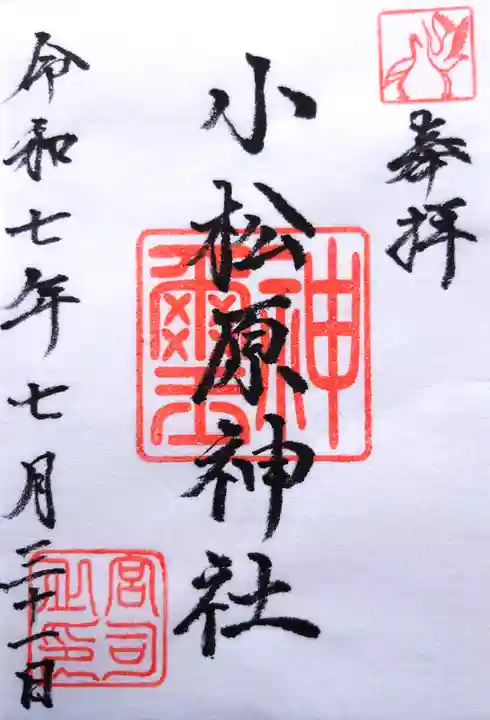 奉拝
小松原神社
令和七年七月二十一日
神璽
宮司之印